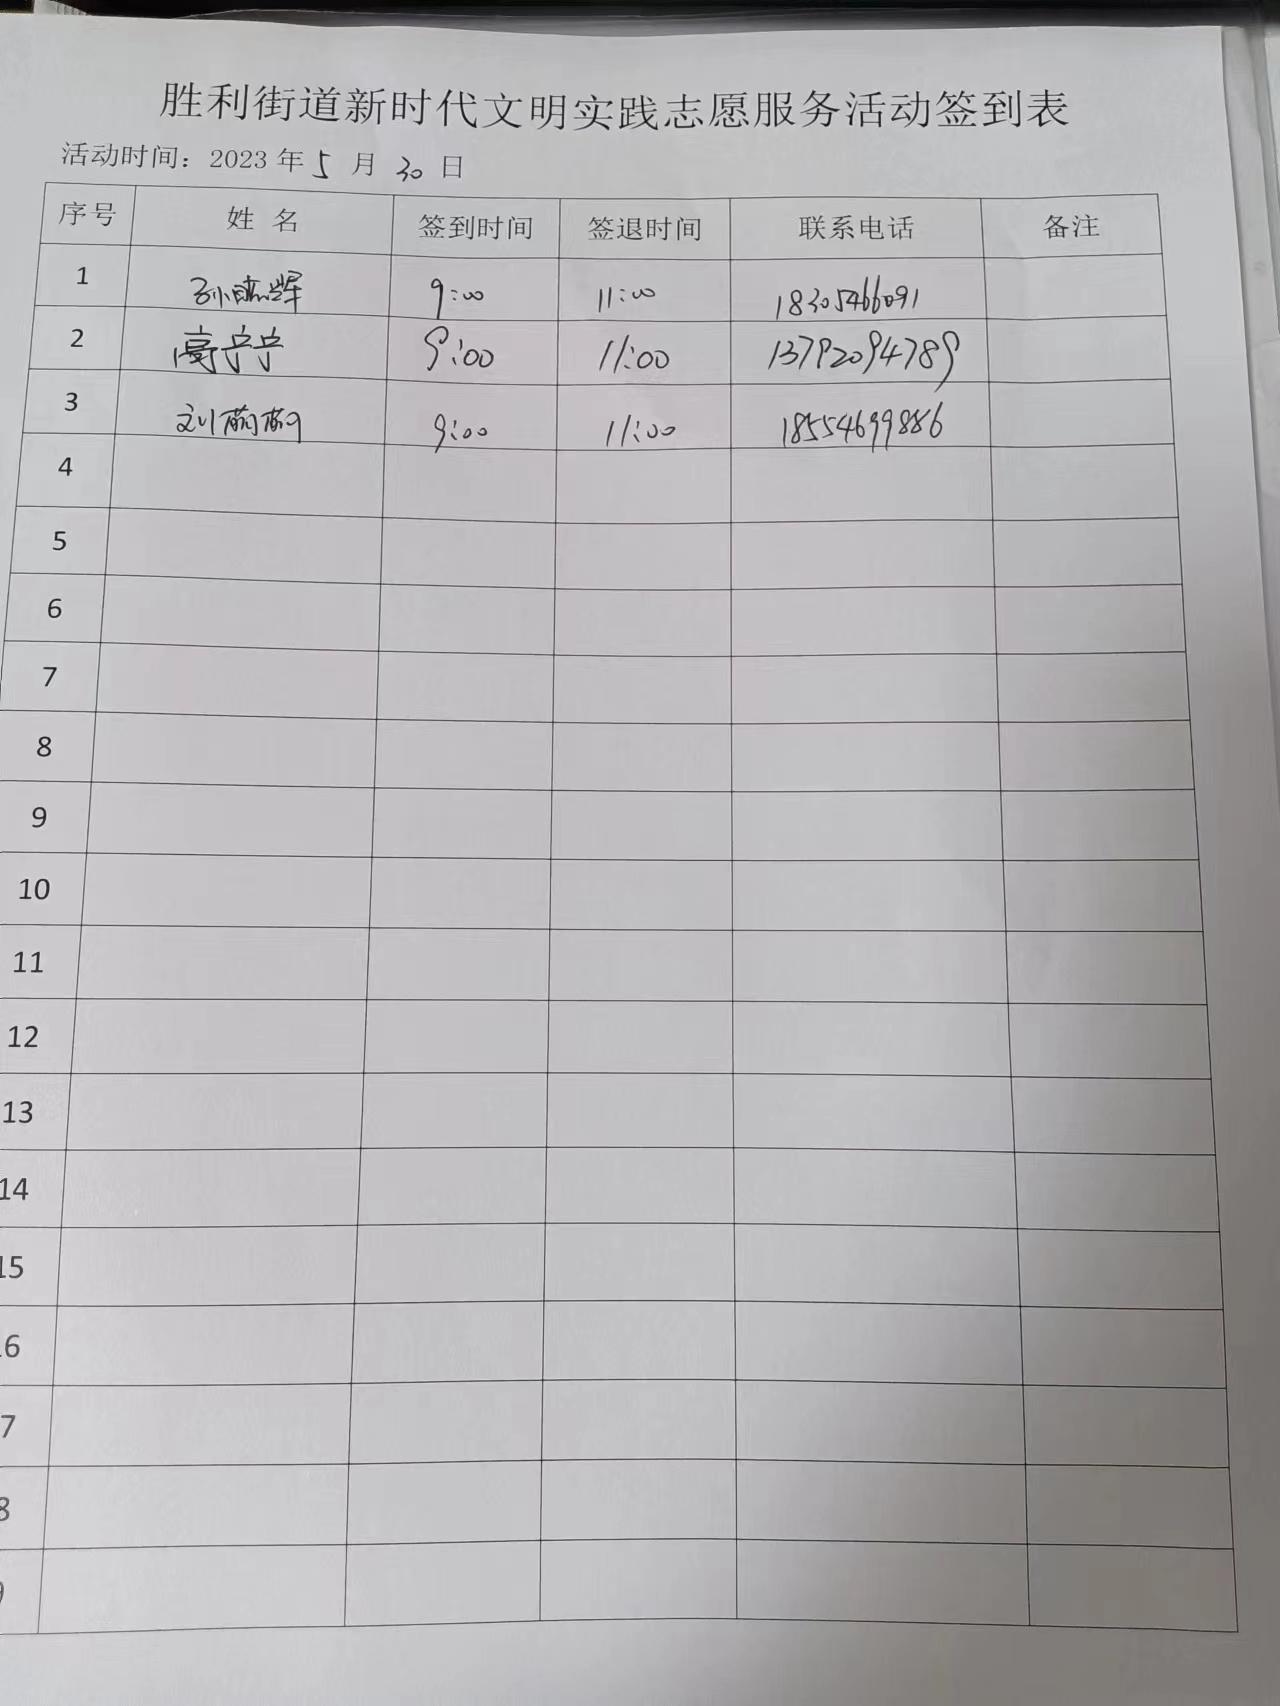 胜利街道新时代文明实践志愿服务活动签到表
活动时间：2023 年 5 月 30 日
序号 姓 名 签到时间 签退时间 联系电话 备注
1 孙 辉 9:00 11:00 18305466091
2 高宁宁 9:00 11:00 13792094789
3 刘萌萌 9:00 11:00 18554699886
4
5
6
7
8
9
10
11
12
13
14
15
6
7
8
9